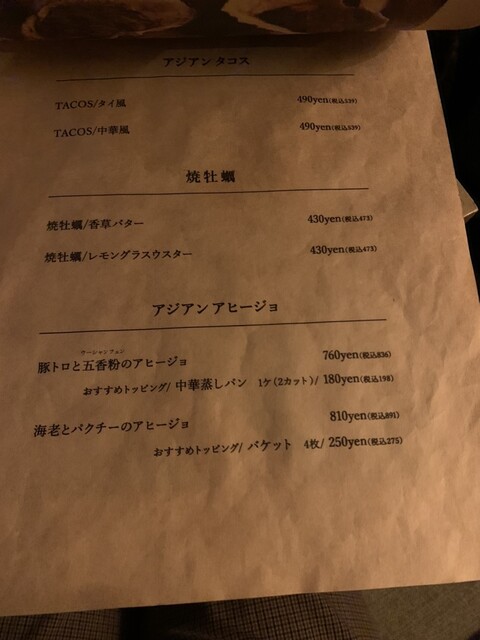 アジアンタコス
TACOS/タイ風 490yen(税込539)
TACOS/中華風 490yen(税込539)
焼牡蠣
焼牡蠣/香草バター 430yen(税込473)
焼牡蠣/レモングラスウスター 430yen(税込473)
アジアンアヒージョ
ウーシャンフェン
豚トロと五香粉のアヒージョ 760yen(税込836)
おすすめトッピング/ 中華蒸しパン 1ケ(2カット)/ 180yen(税込198)
海老とパクチーのアヒージョ 810yen(税込891)
おすすめトッピング/ バケット 4枚/ 250yen(税込275)